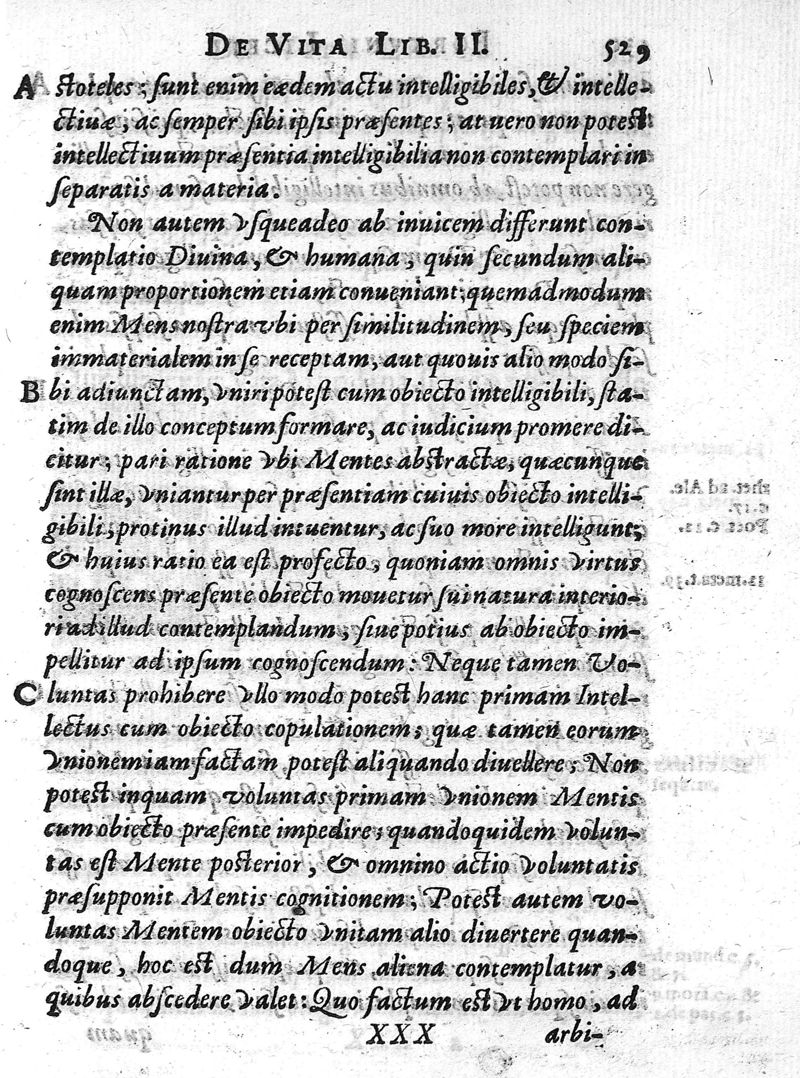 DE VITA LIB. II. 529
A ſtoteles; ſunt enim eædem actu intelligibiles, & intelle-
ctiuæ, ac ſemper ſibi ipſis præſentes; at uero non poteſt
intellectiuum præſentia intelligibilia non contemplari in
ſeparatis a materia.
Non autem vſqueadeo ab inuicem differunt con-
templatio Diuina, & humana, quin ſecundum ali-
quam proportionem etiam conueniant: quemadmodum
enim Mens noſtra vbi per ſimilitudinem, ſeu ſpeciem
immaterialem in ſe receptam, aut quouis alio modo ſi-
B bi adiunctam, vniri poteſt cum obiecto intelligibili, ſta-
tim de illo conceptum formare, ac iudicium promere di-
citur; pari ratione vbi Mentes abſtractæ, quæcunque
ſint illæ, vniantur per præſentiam cuiuis obiecto intelli-
gibili, protinus illud intuentur, ac ſuo more intelligunt;
& huius ratio ea eſt profecto, quoniam omnis virtus
cognoſcens præſente obiecto mouetur ſui natura interio-
ri ad illud contemplandum, ſiue potius ab obiecto im-
pellitur ad ipſum cognoſcendum: Neque tamen Vo-
C luntas prohibere vllo modo poteſt hanc primam Intel-
lectus cum obiecto copulationem; quæ tamen eorum
vnionem iam factam poteſt aliquando diuellere; Non
poteſt inquam voluntas primam vnionem Mentis
cum obiecto præſente impedire; quandoquidem volun-
tas eſt Mente poſterior, & omnino actio voluntatis
præſupponit Mentis cognitionem; Poteſt autem vo-
luntas Mentem obiecto vnitam alio diuertere quan-
doque, hoc eſt dum Mens aliena contemplatur, a
quibus abſcedere valet: Quo factum eſt vt homo, ad
XXX arbi-